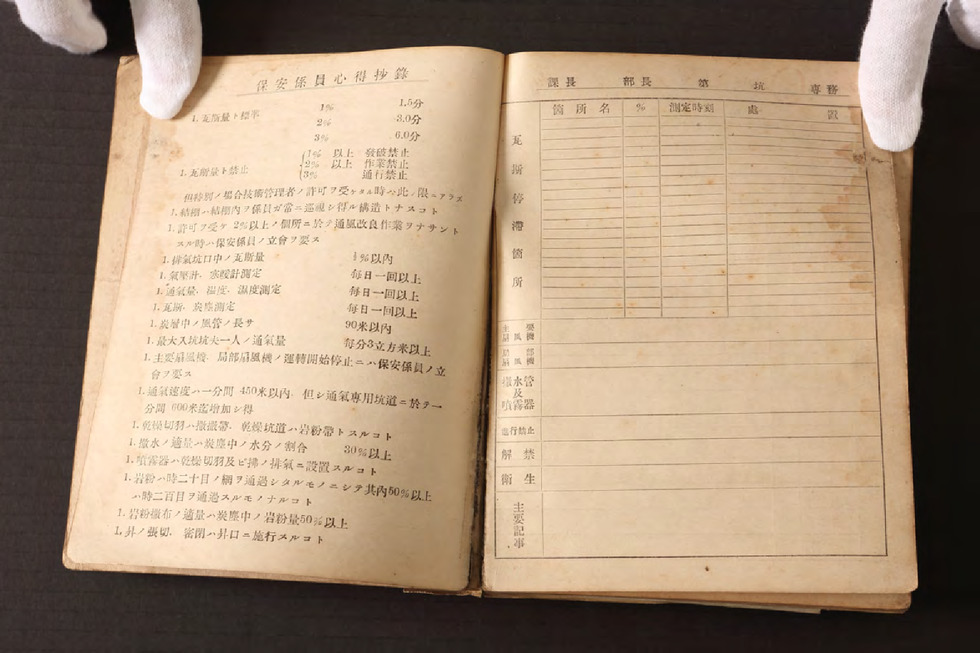 保安係員心得抄錄
1. 瓦斯量ト標準 1% 1.5分
2% 3.0分
3% 6.0分
1% 以上 發破禁止
1. 瓦斯量ト禁止 2% 以上 作業禁止
3% 通行禁止
但特別ノ場合技術管理者ノ許可ヲ受ケタル時ハ此ノ限ニアラズ
1. 結柵ハ結柵內ヲ係員ガ常ニ巡視シ得ル構造トナスコト
1. 許可ヲ受ケ 2%以上ノ個所ニ於テ通風改良作業ヲナサント
スル時ハ保安係員ノ立會ヲ要ス
1. 排氣坑口中ノ瓦斯量 %以內
1. 氣壓計、寒暖計測定 每日一回以上
1. 通氣量、溫度、濕度測定 每日一回以上
1. 瓦斯、炭塵測定 每日一回以上
1. 炭層中ノ風管ノ長サ 90米以內
1. 最大入坑坑夫一人ノ通氣量 每分3立方米以上
1. 主要扇風機、局部扇風機ノ運轉開始停止ニハ保安係員ノ立
會ヲ要ス
1. 通氣速度ハ一分間 450米以內、但シ通氣專用坑道ニ於テ一
分間 600米迄增加シ得
1. 乾燥切羽ハ撒水帶、乾燥坑道ハ岩粉帶トスルコト
1. 撒水ノ適量ハ炭塵中ノ水分ノ割合 30%以上
1. 噴霧器ハ乾燥切羽及ビ捲ノ排氣ニ設置スルコト
1. 岩粉ハ時二十目ノ網ヲ通過シタルモノニシテ其內50%以上
ハ時二百目ヲ通過スルモノナルコト
1. 岩粉撒布ノ適量ハ炭塵中ノ岩粉量50%以上
1. 昇ノ張切、密閉ハ昇口ニ施行スルコト
課長 部長 第 坑 專務
箇所名 % 測定時刻 處置
瓦斯停滯箇所
主要扇風機
局部扇風機
撒水管及噴霧器
進行禁止
解禁
衛生
主要記事